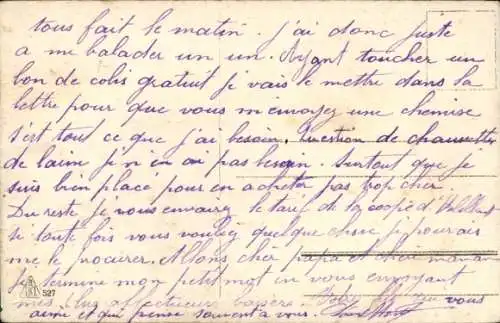 tous fait le matin. j'ai donc juste
a me balader un un. Ayant toucher un
bon de colis gratuit je vais le mettre dans la
lettre pour que vous m'envoyez une chemise
s'est tout ce que j'ai besoin. Question de chaussettes
de laine j'n en ai pas besoin. surtout que je
suis bien placé pour en acheter pas trop cher
Du reste je vous envairez le tarif de la coopé d'
si toute fois vous voulez quelque chose je pourais
me le procurer. Allons cher papa et chère maman
je termine mon petit mot en vous envoyant
mes plus affectueux baisers. vous
aime et qui pense souvent a vous.
527